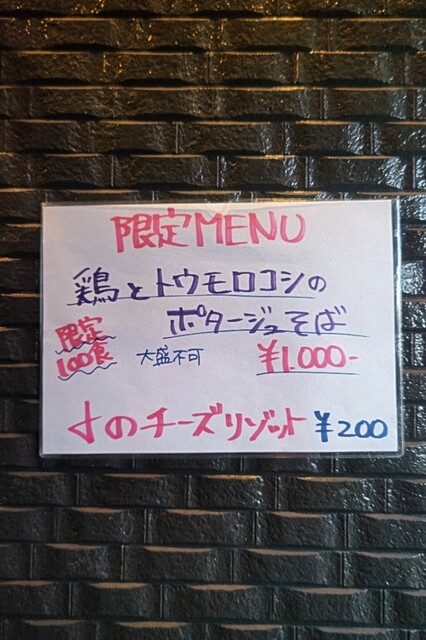 限定MENU
鶏とトウモロコシの
ポタージュそば
限定
100食
大盛不可
¥1.000-
↓のチーズリゾット ¥200